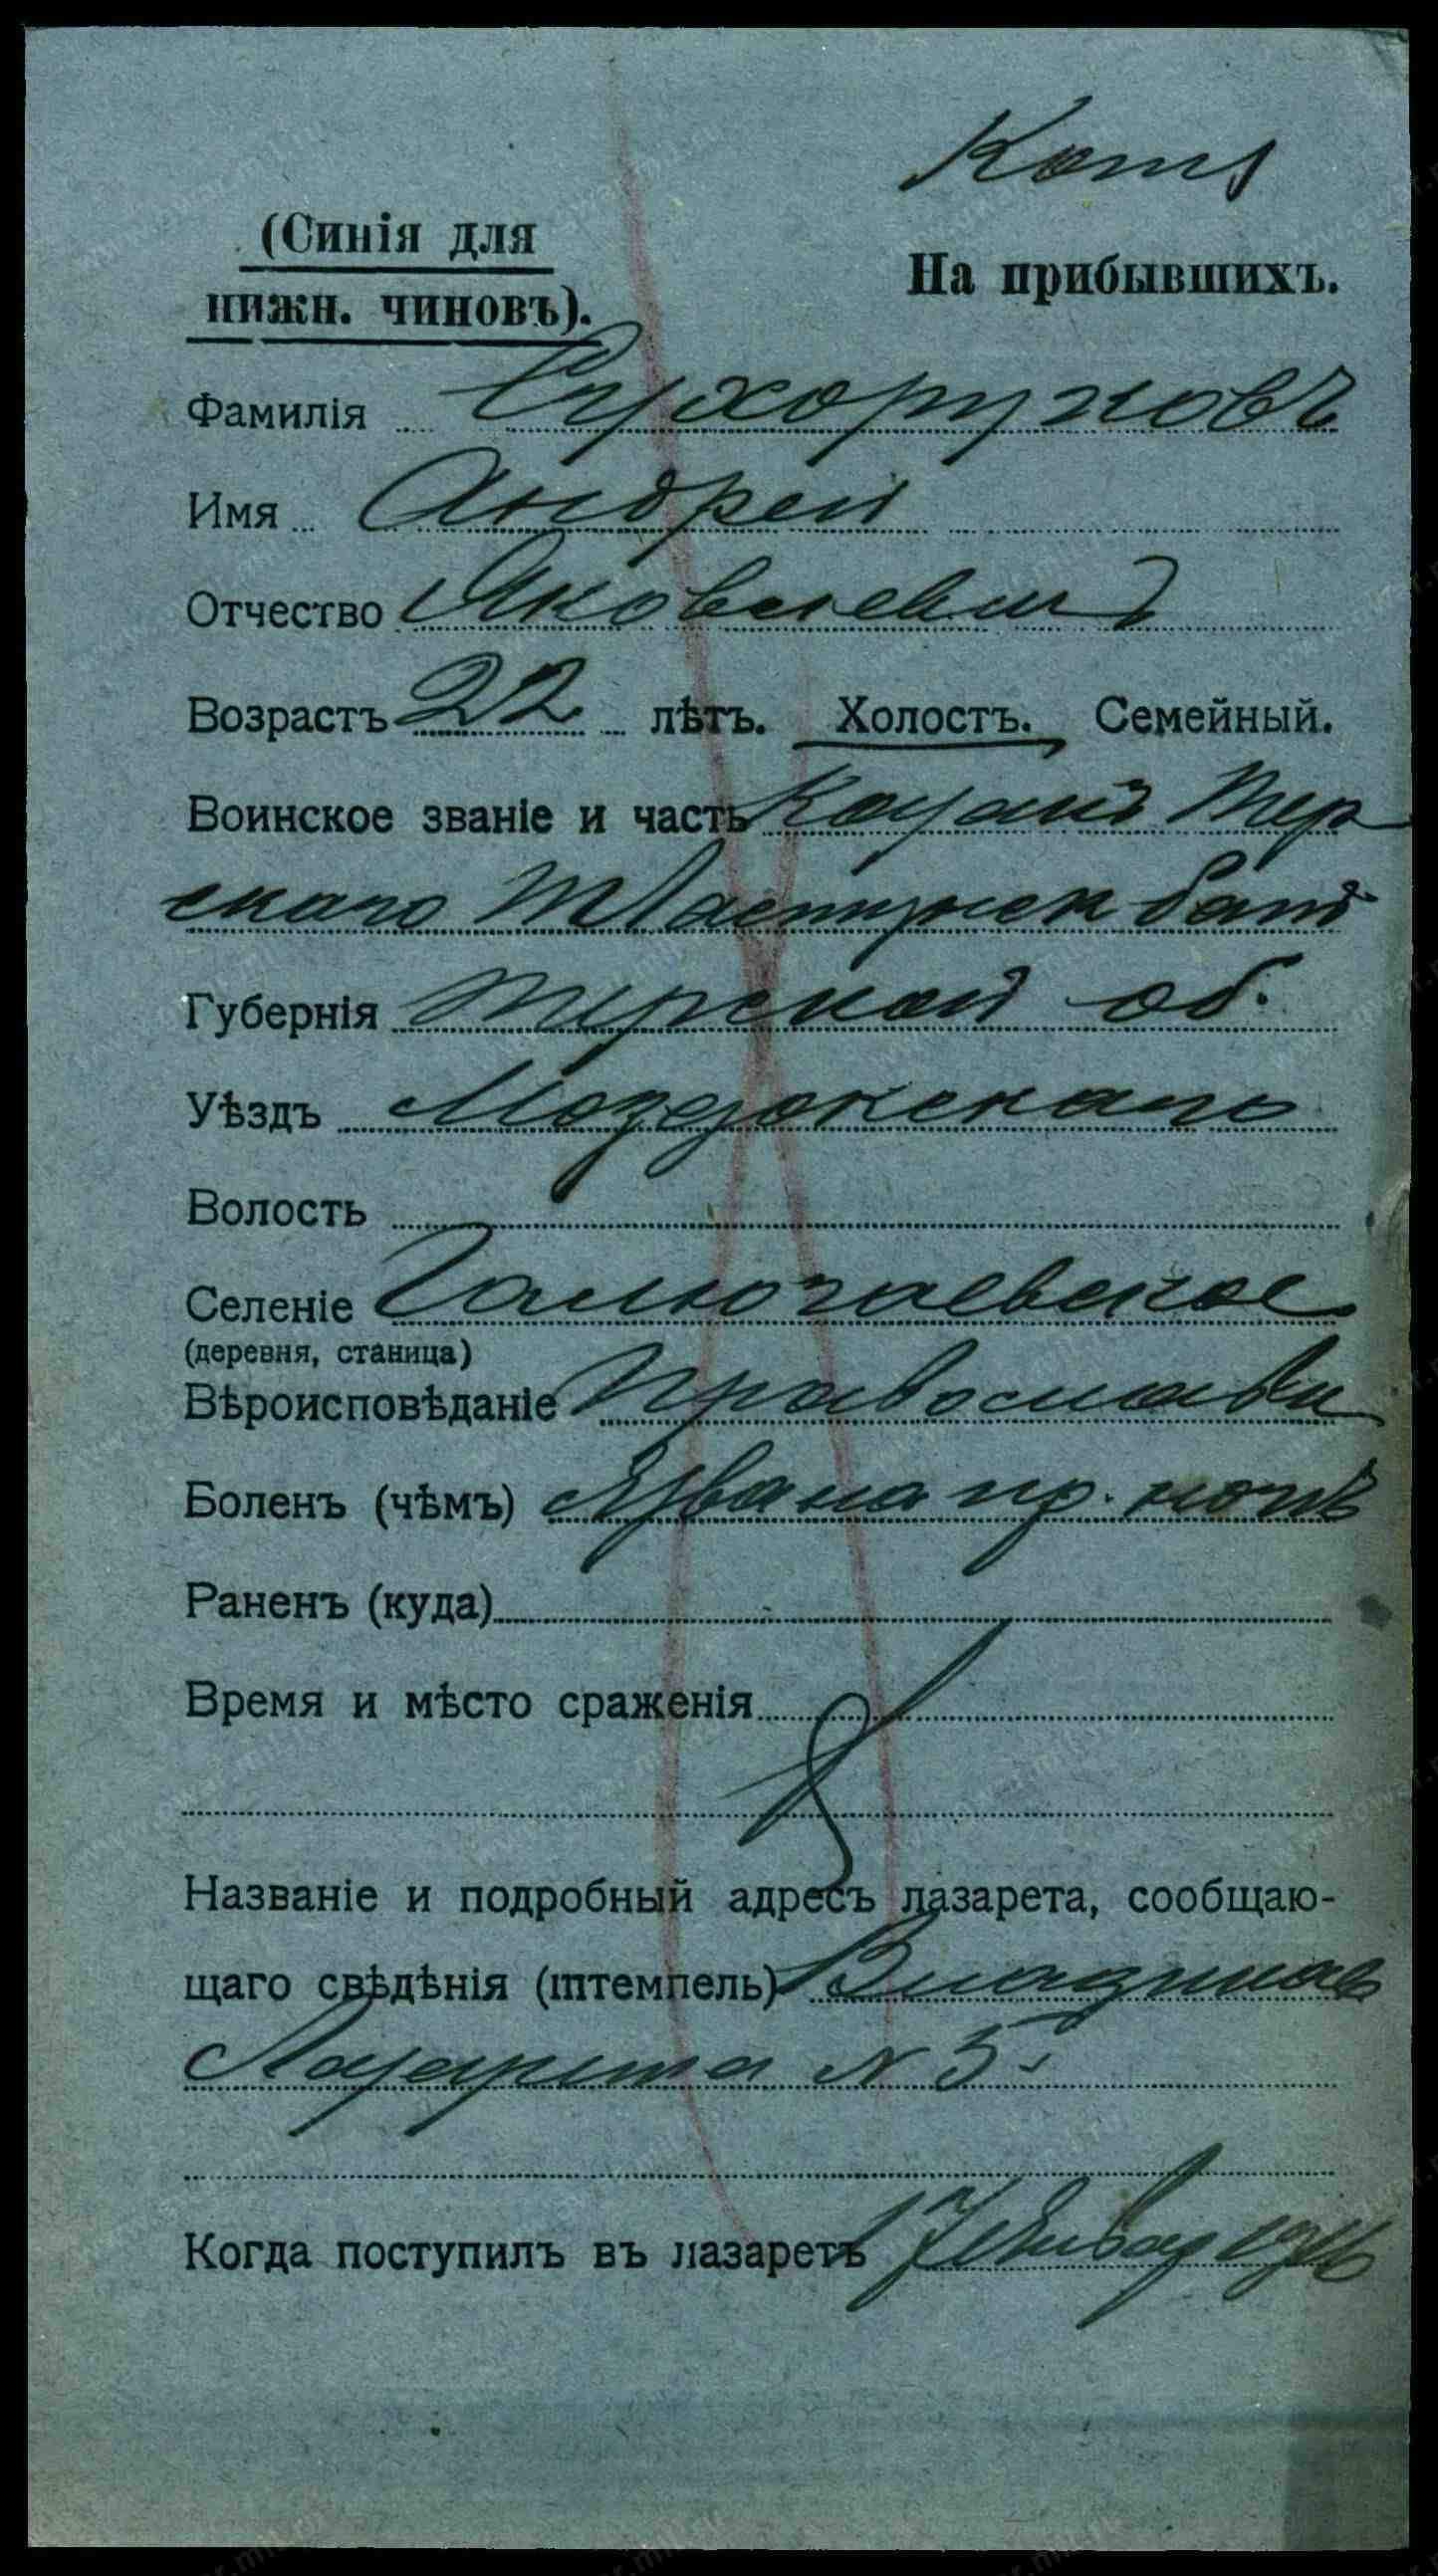 (Синія для
нижн. чиновъ).
На прибывшихъ.
Фамилія Сухоруковъ
Имя Андрей
Отчество Яковлевич
Возрастъ 22 лѣтъ. Холостъ. Семейный.
Воинское званіе и часть Казакъ Тер
скаго Пластунск бат
Губернія Терской об.
Уѣздъ Моздокскаго
Волость
Селеніе Галюгаевское
(деревня, станица)
Вѣроисповѣданіе Православн
Боленъ (чѣмъ) Язва на пр. ногѣ
Раненъ (куда)
Время и мѣсто сраженія
Названіе и подробный адресъ лазарета, сообщаю-
щаго свѣдѣнія (штемпель) Владикав
Лазарета N 5
Когда поступилъ въ лазаретъ 17 Январ 1916